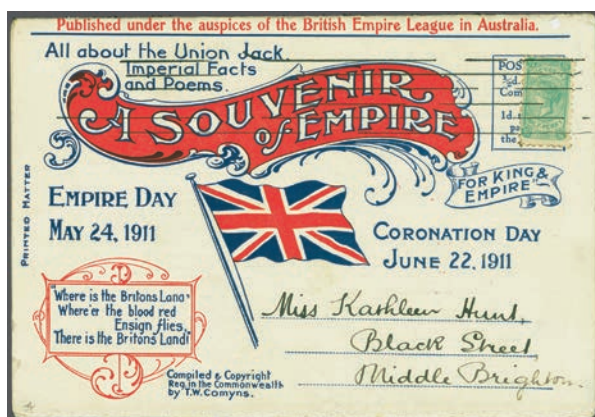 Published under the auspices of the British Empire League in Australia.
All about the Union Jack
Imperial Facts
and Poems.
A SOUVENIR
of EMPIRE
POS
½d.
Com
1d.
pa
the
"FOR KING &
EMPIRE"
PRINTED MATTER
EMPIRE DAY
MAY 24, 1911
CORONATION DAY
JUNE 22, 1911
"Where is the Britons Land?
Where'er the blood red
Ensign flies,
There is the Britons Land!"
Compiled & Copyright
Reg. in the Commonwealth
by T.W. Comyns.
Miss Kathleen Hunt,
Black Street
Middle Brighton.